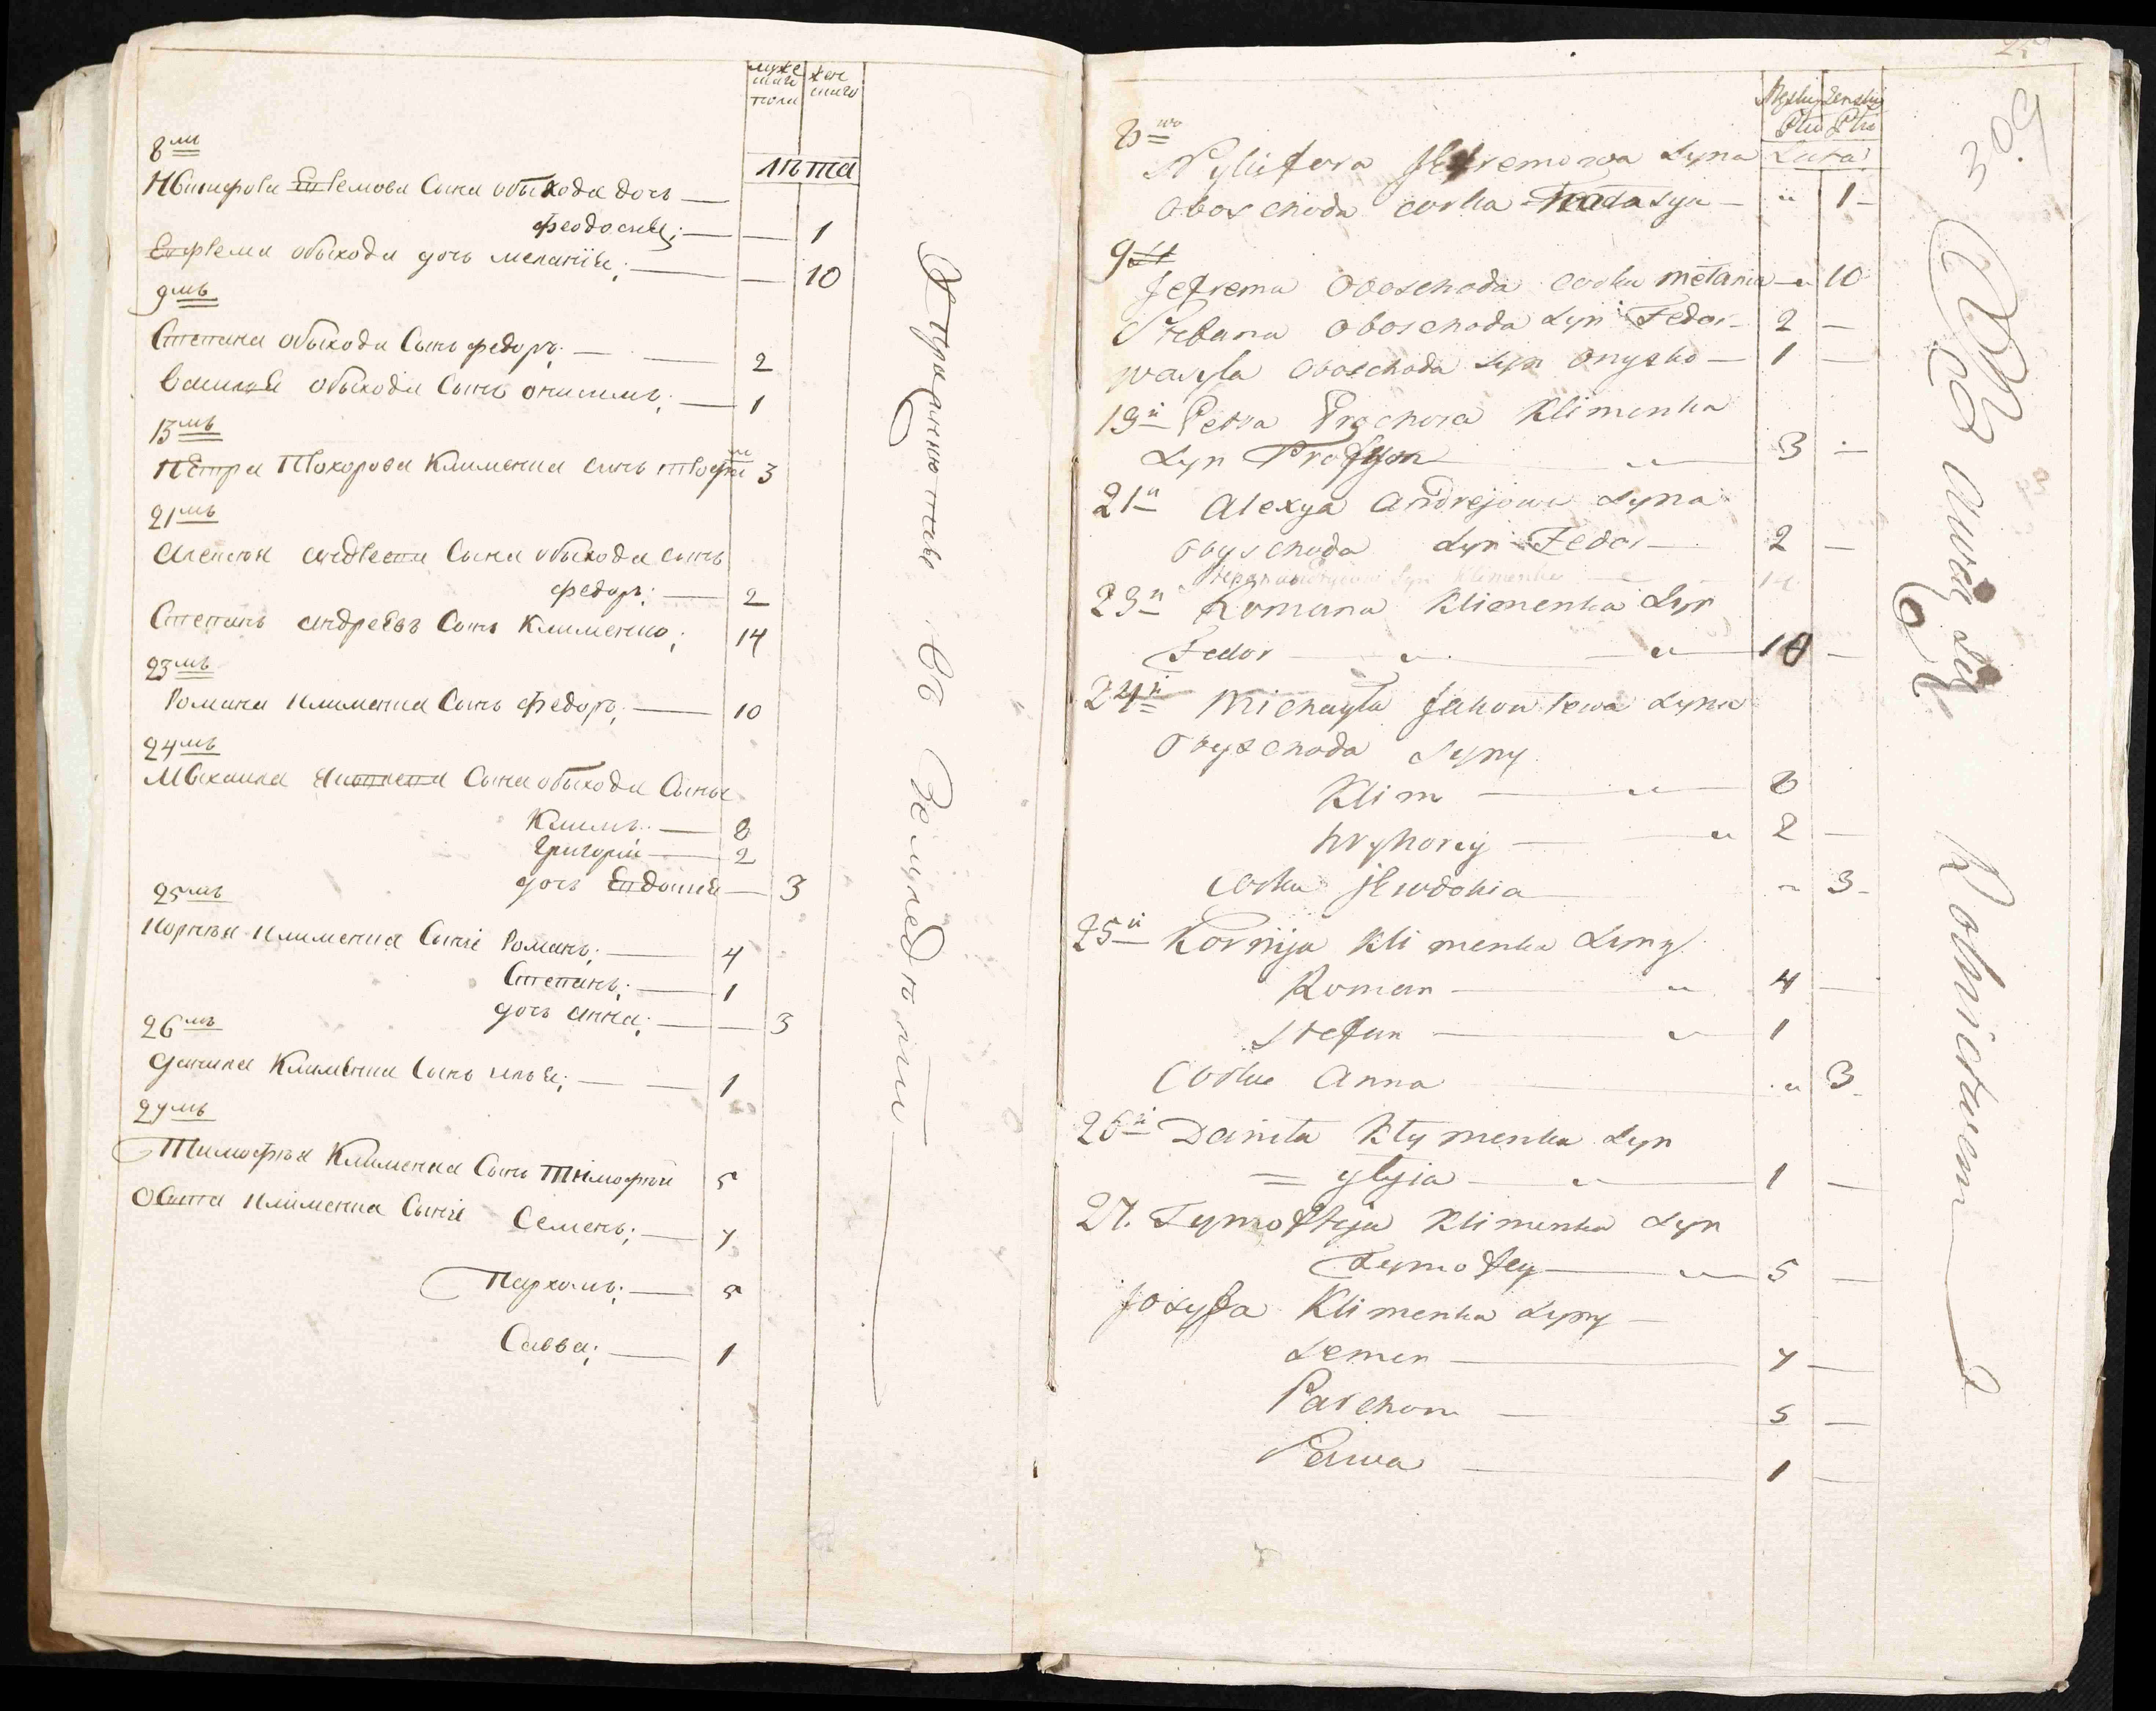 муже
скаго
пола
жен
скаго
лѣта
8мъ
Никифора Ефремова Сына обыхода дочь —
Феодосия; — — 1
Ефрема обыхода дочь мелания; — — 10
9мъ
Степана обыхода Сынъ федоръ; — — 2
Василя обыхода Сынъ онисимъ; — 1
13мъ
Петра Прохорова Клименка сынъ трофим 3
21мъ
Алексея андреева Сына обыхода сынъ
федоръ; — 2
Степанъ андреевъ Сынъ Клименко; 14
23мъ
Романа клименка Сынъ Федоръ; — 10
24мъ
Михаила Яковлева Сына обыхода Сыны
Климъ — 8
Григорій — 2
дочь Евдокия — 3
25мъ
Корнѣя клименка Сыні Романъ; — 4
Степанъ; — 1
дочь анна; — — 3
26мъ
Данила Клименка Сынъ илья; — — 1
27мъ
Тимофѣя Клименка Сынъ Тимофѣй 5
Осипа клименка Сыні Семенъ; — 7
Пархомъ; — 5
Савва; — 1
25
309
Męsky Żenskiy
Płci Płci
Lata
8wo
Nykifora Jefremowa syna
oboschoda corka — " 1 —
9
Jefrema Oboschoda corka melania — " 10
Stefana oboschoda syn Fedor — 2 —
wasyla oboschoda syn onysko — 1 —
19 Petra Prochora Klimenka
syn Trofym " 3 —
21 Alexya Andrejowa syna
obyschoda syn Fedor — 2 —
23 Romana Klimenka syn
Fedor — " — " — 10 —
24 Michayła Jakowlewa syna
obyschoda syny
Klim — " — 8
hryhorey — " 2 —
corka jewdokia — " 3 —
25 Kornija Klimenka syny
Roman — " 4 —
Stefan — " 1
Corka Anna " 3
26 Daniła Kłymenka syn
= ylyia — " — 1 —
27. Tymofteja Klimenka syn
Tymofey — " — 5 —
Josyfa Klimenka syny —
Semen — 7 —
Parchom — 5 —
Sawa — 1 —